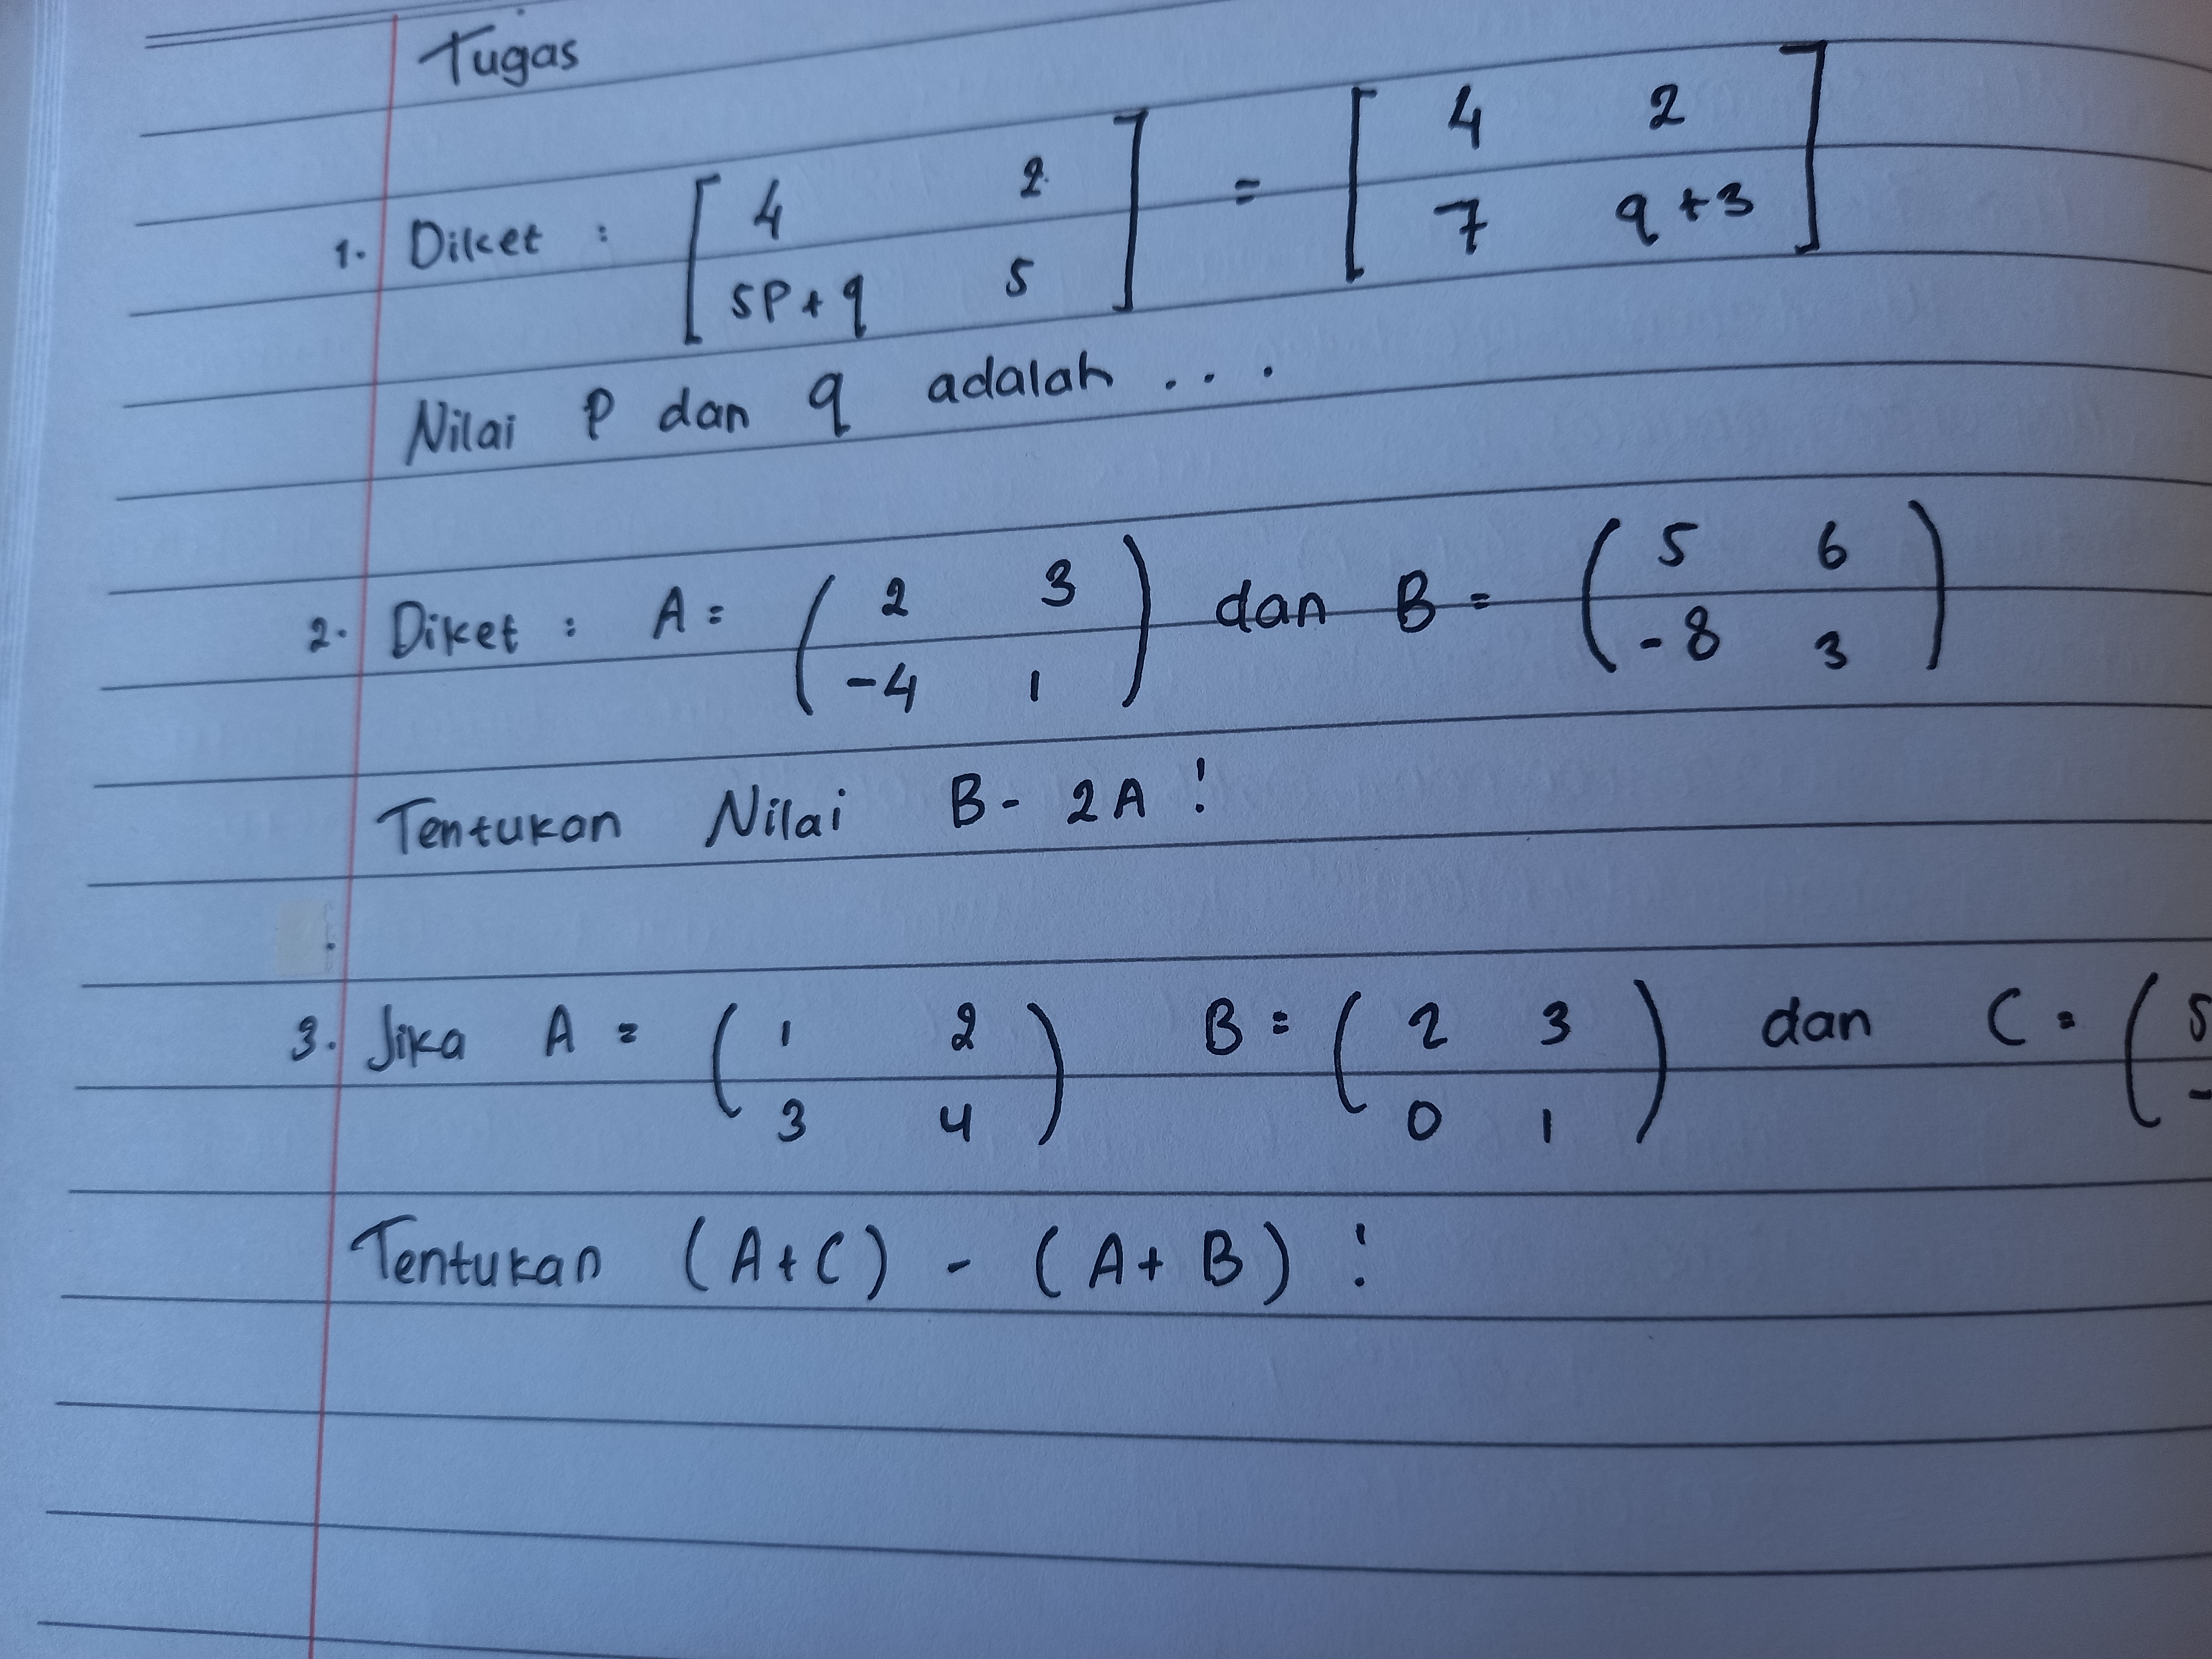 Tugas
1. Diket : [ 4 2 ] = [ 4 2 ]
[ 5p+q 5 ] [ 7 q+3 ]
Nilai p dan q adalah ...
2. Diket : A = ( 2 3 ) dan B = ( 5 6 )
( -4 1 ) ( -8 3 )
Tentukan Nilai B - 2A !
3. Jika A = ( 1 2 ) B = ( 2 3 ) dan C = ( 5
( 3 4 ) ( 0 1 ) ( -
Tentukan (A+C) - (A+B) !